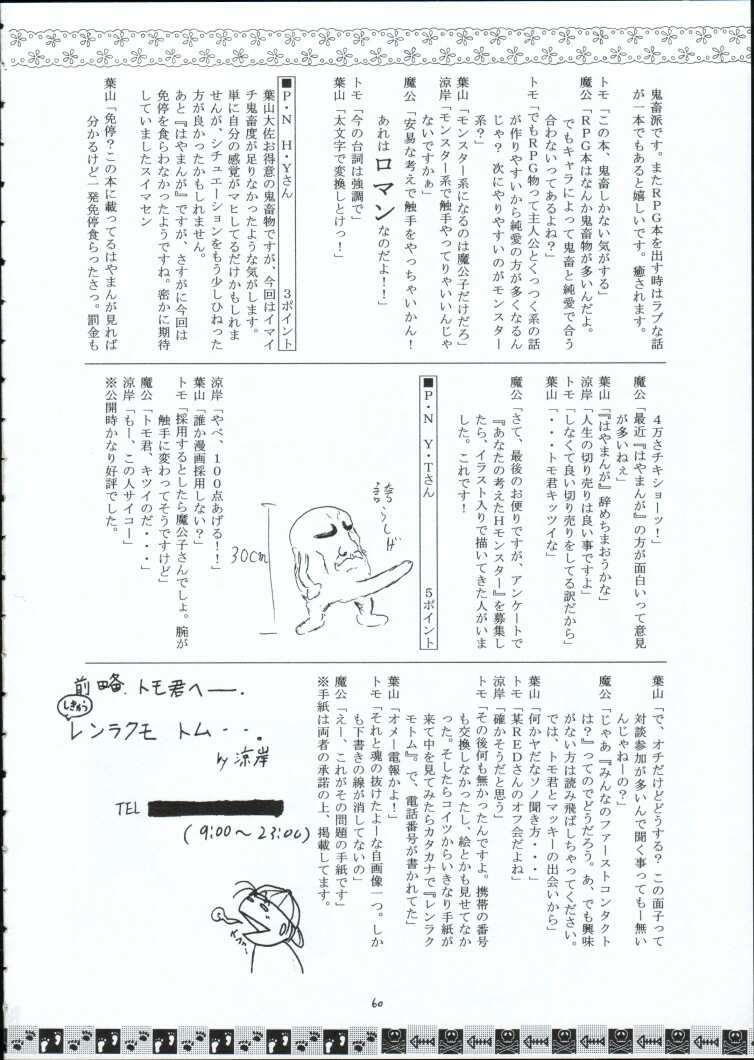 鬼畜派です。またRPG本を出す時はラブな話
が一本でもあると嬉しいです。癒されます。
トモ「この本、鬼畜しかない気がする」
魔公「RPG本はなんか鬼畜物が多いんだよ。
でもキャラによって鬼畜と純愛で合う
合わないってあるよね？」
トモ「でもRPG物って主人公とくっつく系の話
が作りやすいから純愛の方が多くなるん
じゃ？次にやりやすいのがモンスター
系？」
葉山「モンスター系になるのは魔公子だけだろ」
涼岸「モンスター系で触手やってりゃいいんじゃ
ないですかぁ」
魔公「安易な考えで触手をやっちゃいかん！
あれはロマンなのだよ！！」
トモ「今の台詞は強調で」
葉山「太文字で変換しとけっ！」
■P・N H・Yさん 3ポイント
葉山大佐お得意の鬼畜物ですが、今回はイマイ
チ鬼畜度が足りなかったような気がします。
単に自分の感覚がマヒしてるだけかもしれま
せんが、シチュエーションをもう少しひねった
方が良かったかもしれません。
あと『はやまんが』ですが、さすがに今回は
免停を食らわなかったようですね。密かに期待
していましたスイマセン
葉山「免停？この本に載ってるはやまんが見れば
分かるけど一発免停食らったさっ。罰金も
4万さチキショーッ！」
魔公「最近『はやまんが』の方が面白いって意見
が多いねぇ」
葉山「『はやまんが』辞めちまおうかな」
涼岸「人生の切り売りは良い事ですよ」
トモ「しなくて良い切り売りをしてる訳だから」
葉山「・・・トモ君キッツイな」
魔公「さて、最後のお便りですが、アンケートで
『あなたの考えたHモンスター』を募集し
たら、イラスト入りで描いてきた人がいま
した。これです！
■P・N Y・Tさん 5ポイント
誇らしげ
30cm
涼岸「やべ、100点あげる！！」
葉山「誰か漫画採用しない？」
トモ「採用するとしたら魔公子さんでしょ。腕が
触手に変わってそうですけど」
魔公「トモ君、キツイのだ・・・」
涼岸「もー、この人サイコー」
※公開時かなり好評でした。
葉山「で、オチだけどどうする？この面子って
対談参加が多いんで聞く事ってもー無い
んじゃねーの？」
魔公「じゃあ『みんなのファーストコンタクト
は？』ってのでどうだろう。あ、でも興味
がない方は読み飛ばしちゃってください。
では、トモ君とマッキーの出会いから」
葉山「何かヤだなソノ聞き方・・・」
トモ「某REDさんのオフ会だよね」
涼岸「確かそうだと思う」
トモ「その後何も無かったんですよ。携帯の番号
も交換しなかったし、絵とかも見せてなか
った。そしたらコイツからいきなり手紙が
来て中を見てみたらカタカナで『レンラク
モトム』。で、電話番号が書かれてた」
葉山「オメー電報かよ！」
トモ「それと魂の抜けたよーな自画像一つ。しか
も下書きの線が消してないの」
魔公「えー、これがその問題の手紙です」
※手紙は両者の承諾の上、掲載してます。
前略、トモ君へ――.
しきゅう
レンラクモトム・・・。
by 涼岸
TEL
(9:00～23:00)
60